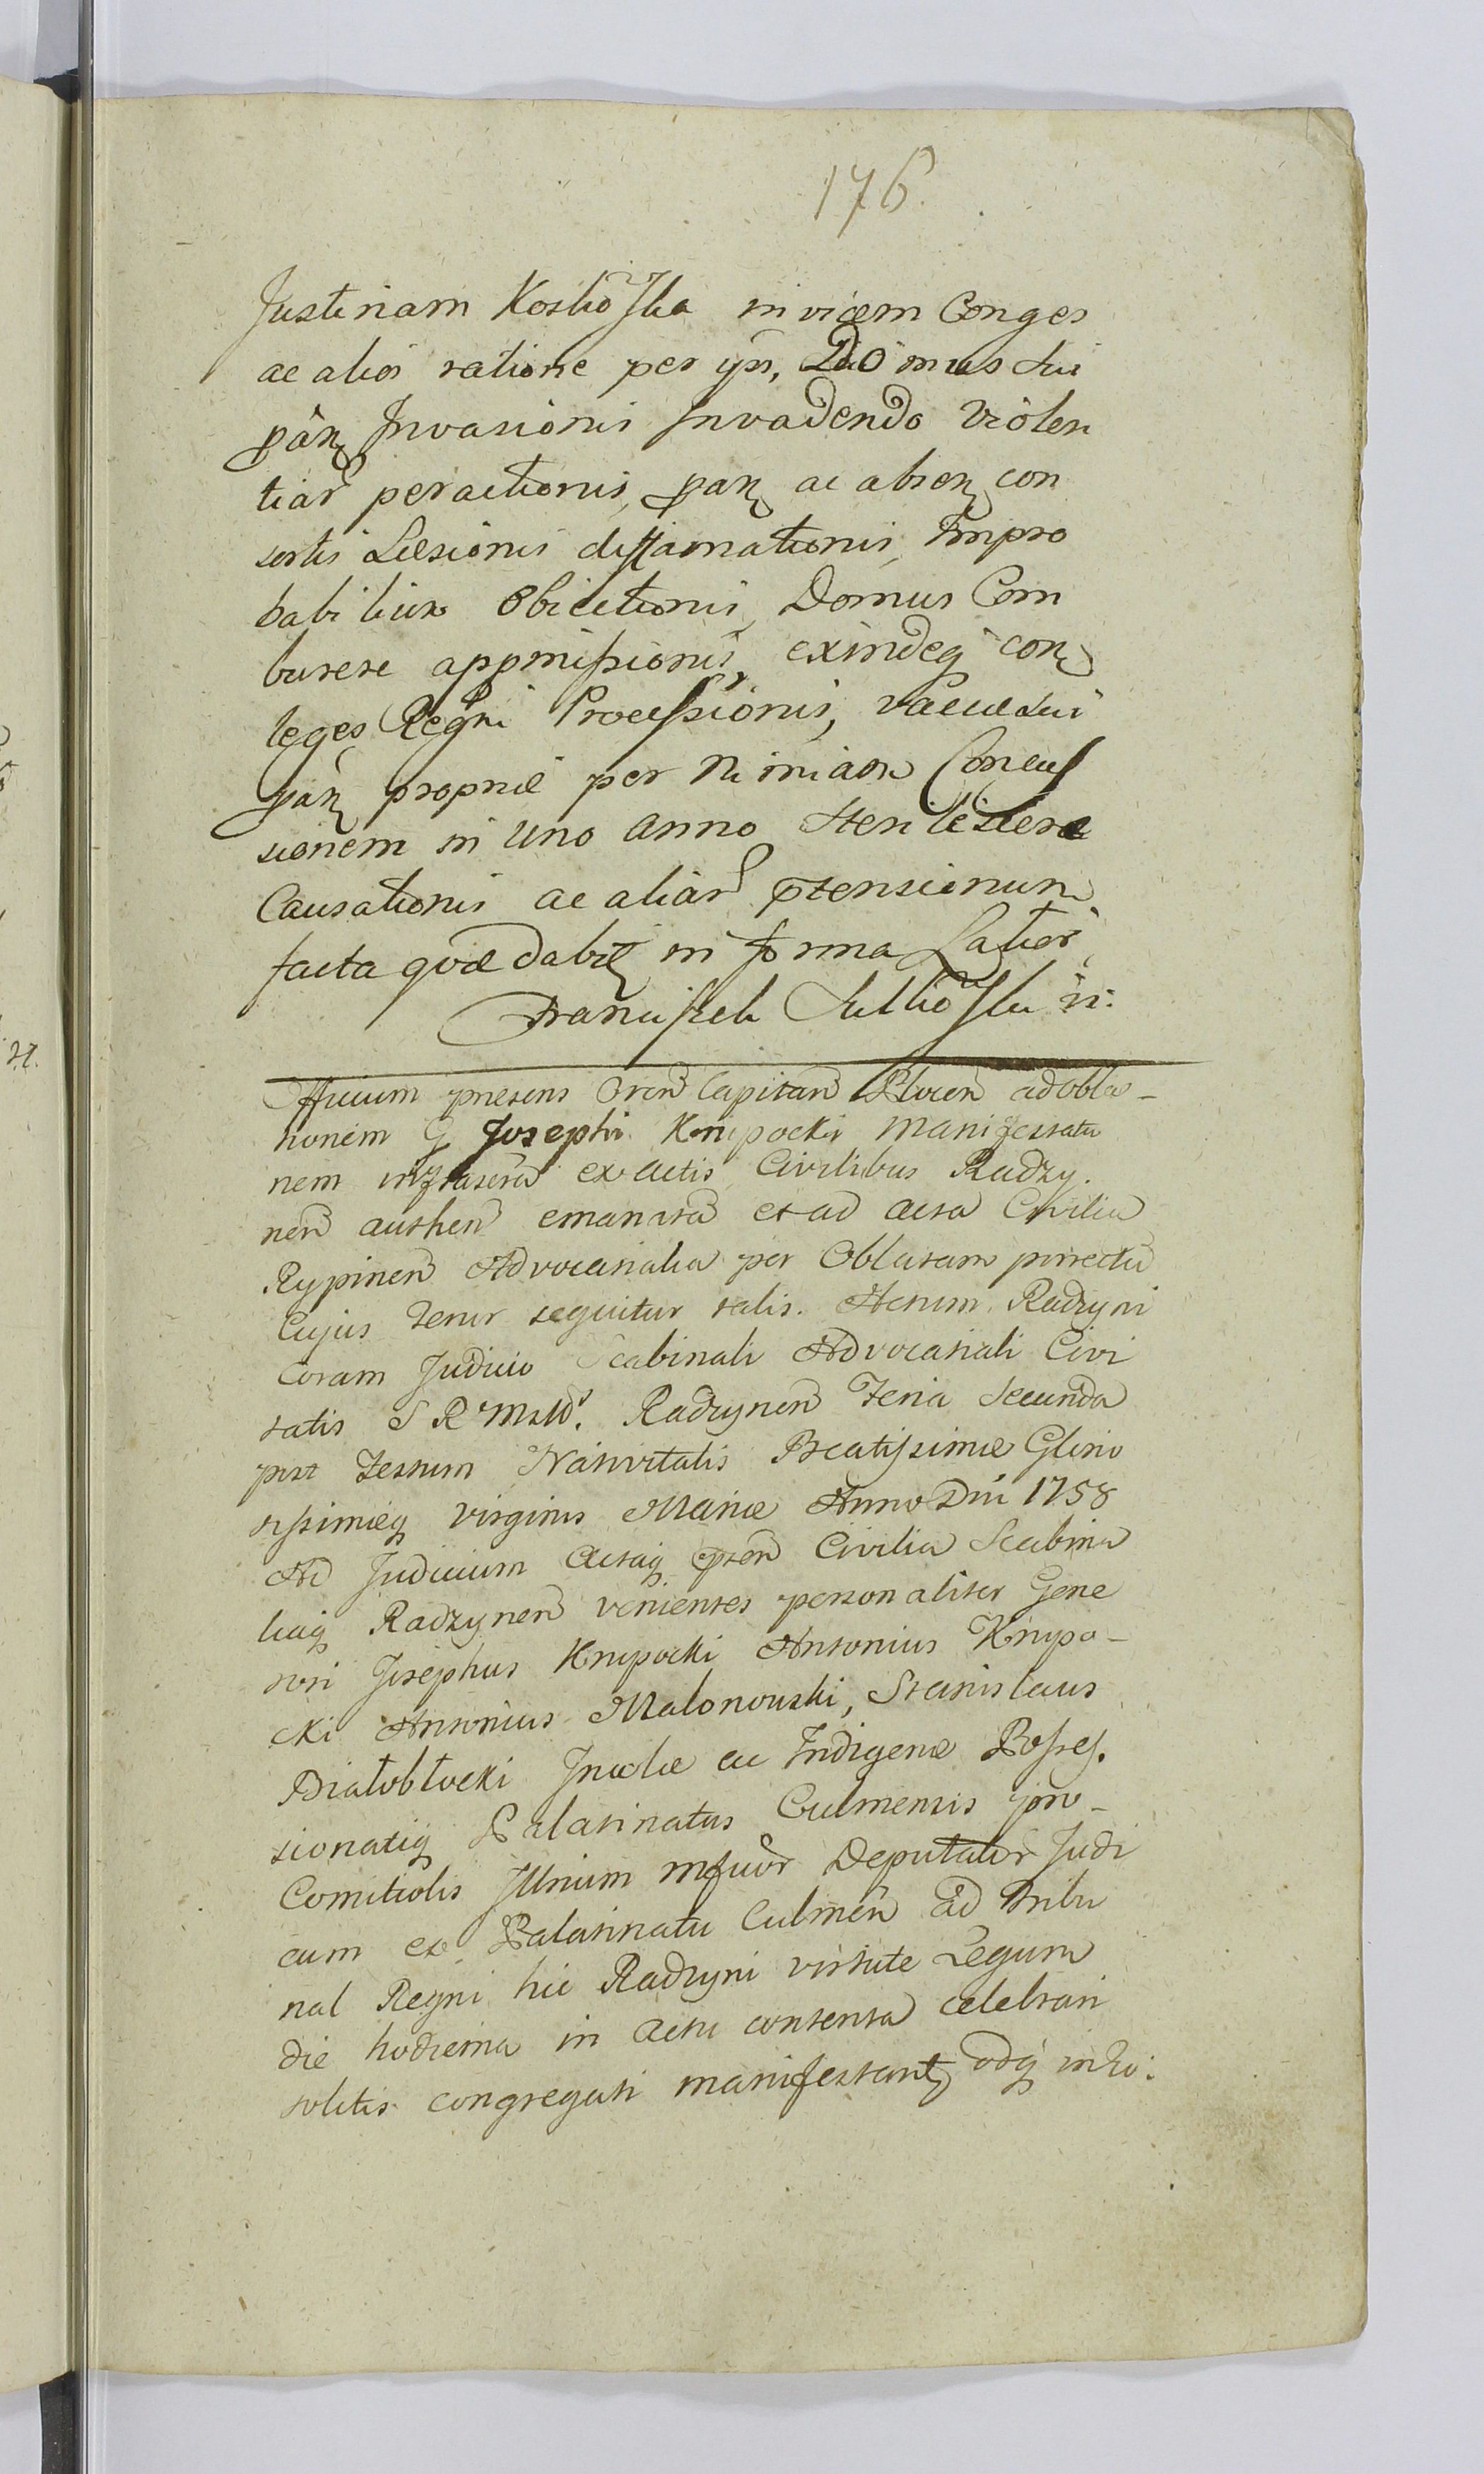 176.
Justinam Kosko Ska invicem Conges
ac alios ratione per ips, Domus sui
pân Invasionis Invadendo Violen
tiar peractionis, pan ac absen con
sortis Læsionis diffamationis, Impro
babilium Obiectionis, Domus Com
burere appromissionis, exindeq con
leges Regni Processionis, vaccæ sui
pan propriæ per nimiam Concus
sionem in uno anno sterilescere
Causationis ac aliar ptensionum
facta quæ dabit in forma Latior
Franciszek Sulko Sku
Officium presens Cren Capitan Plocen ad obla-
tionem G Josephi Knipocki Manifestatio
nem infrascra ex actis Civilibus Radzy.
nen authen emanata et ad acta Civilia
Rypinen Advocatialia per Oblatam porrecta
Cujus tenor sequitur talis. Actum Radzyni
Coram Judicio Scabinali Advocatiali Civi
tatis S R Mttis. Radzynen Feria Secunda
post Festum Nativitatis Beatissimæ Glorio
sissimæq Virginis Mariæ Anno Dni 1758
Ad Judicium Actaq pten Civilia Scabina
liaq Radzynen venientes personaliter Gene
rosi Josephus Knipocki Antonius Knypo-
cki Antonius Malonouski, Stanislaus
Białobłocki Incolæ ac Indigenæ Posses.
sionatiq Palatinatus Culmensis pro-
Comitiolis Illnium Mfuor Deputator Judi
cum ex Palatinatu Culmen ad Tribu
nal Regni hic Radzyni virtute Legum
die hodierna in actu contenta celebrari
solitis congregati manifestant, odq in Lo: